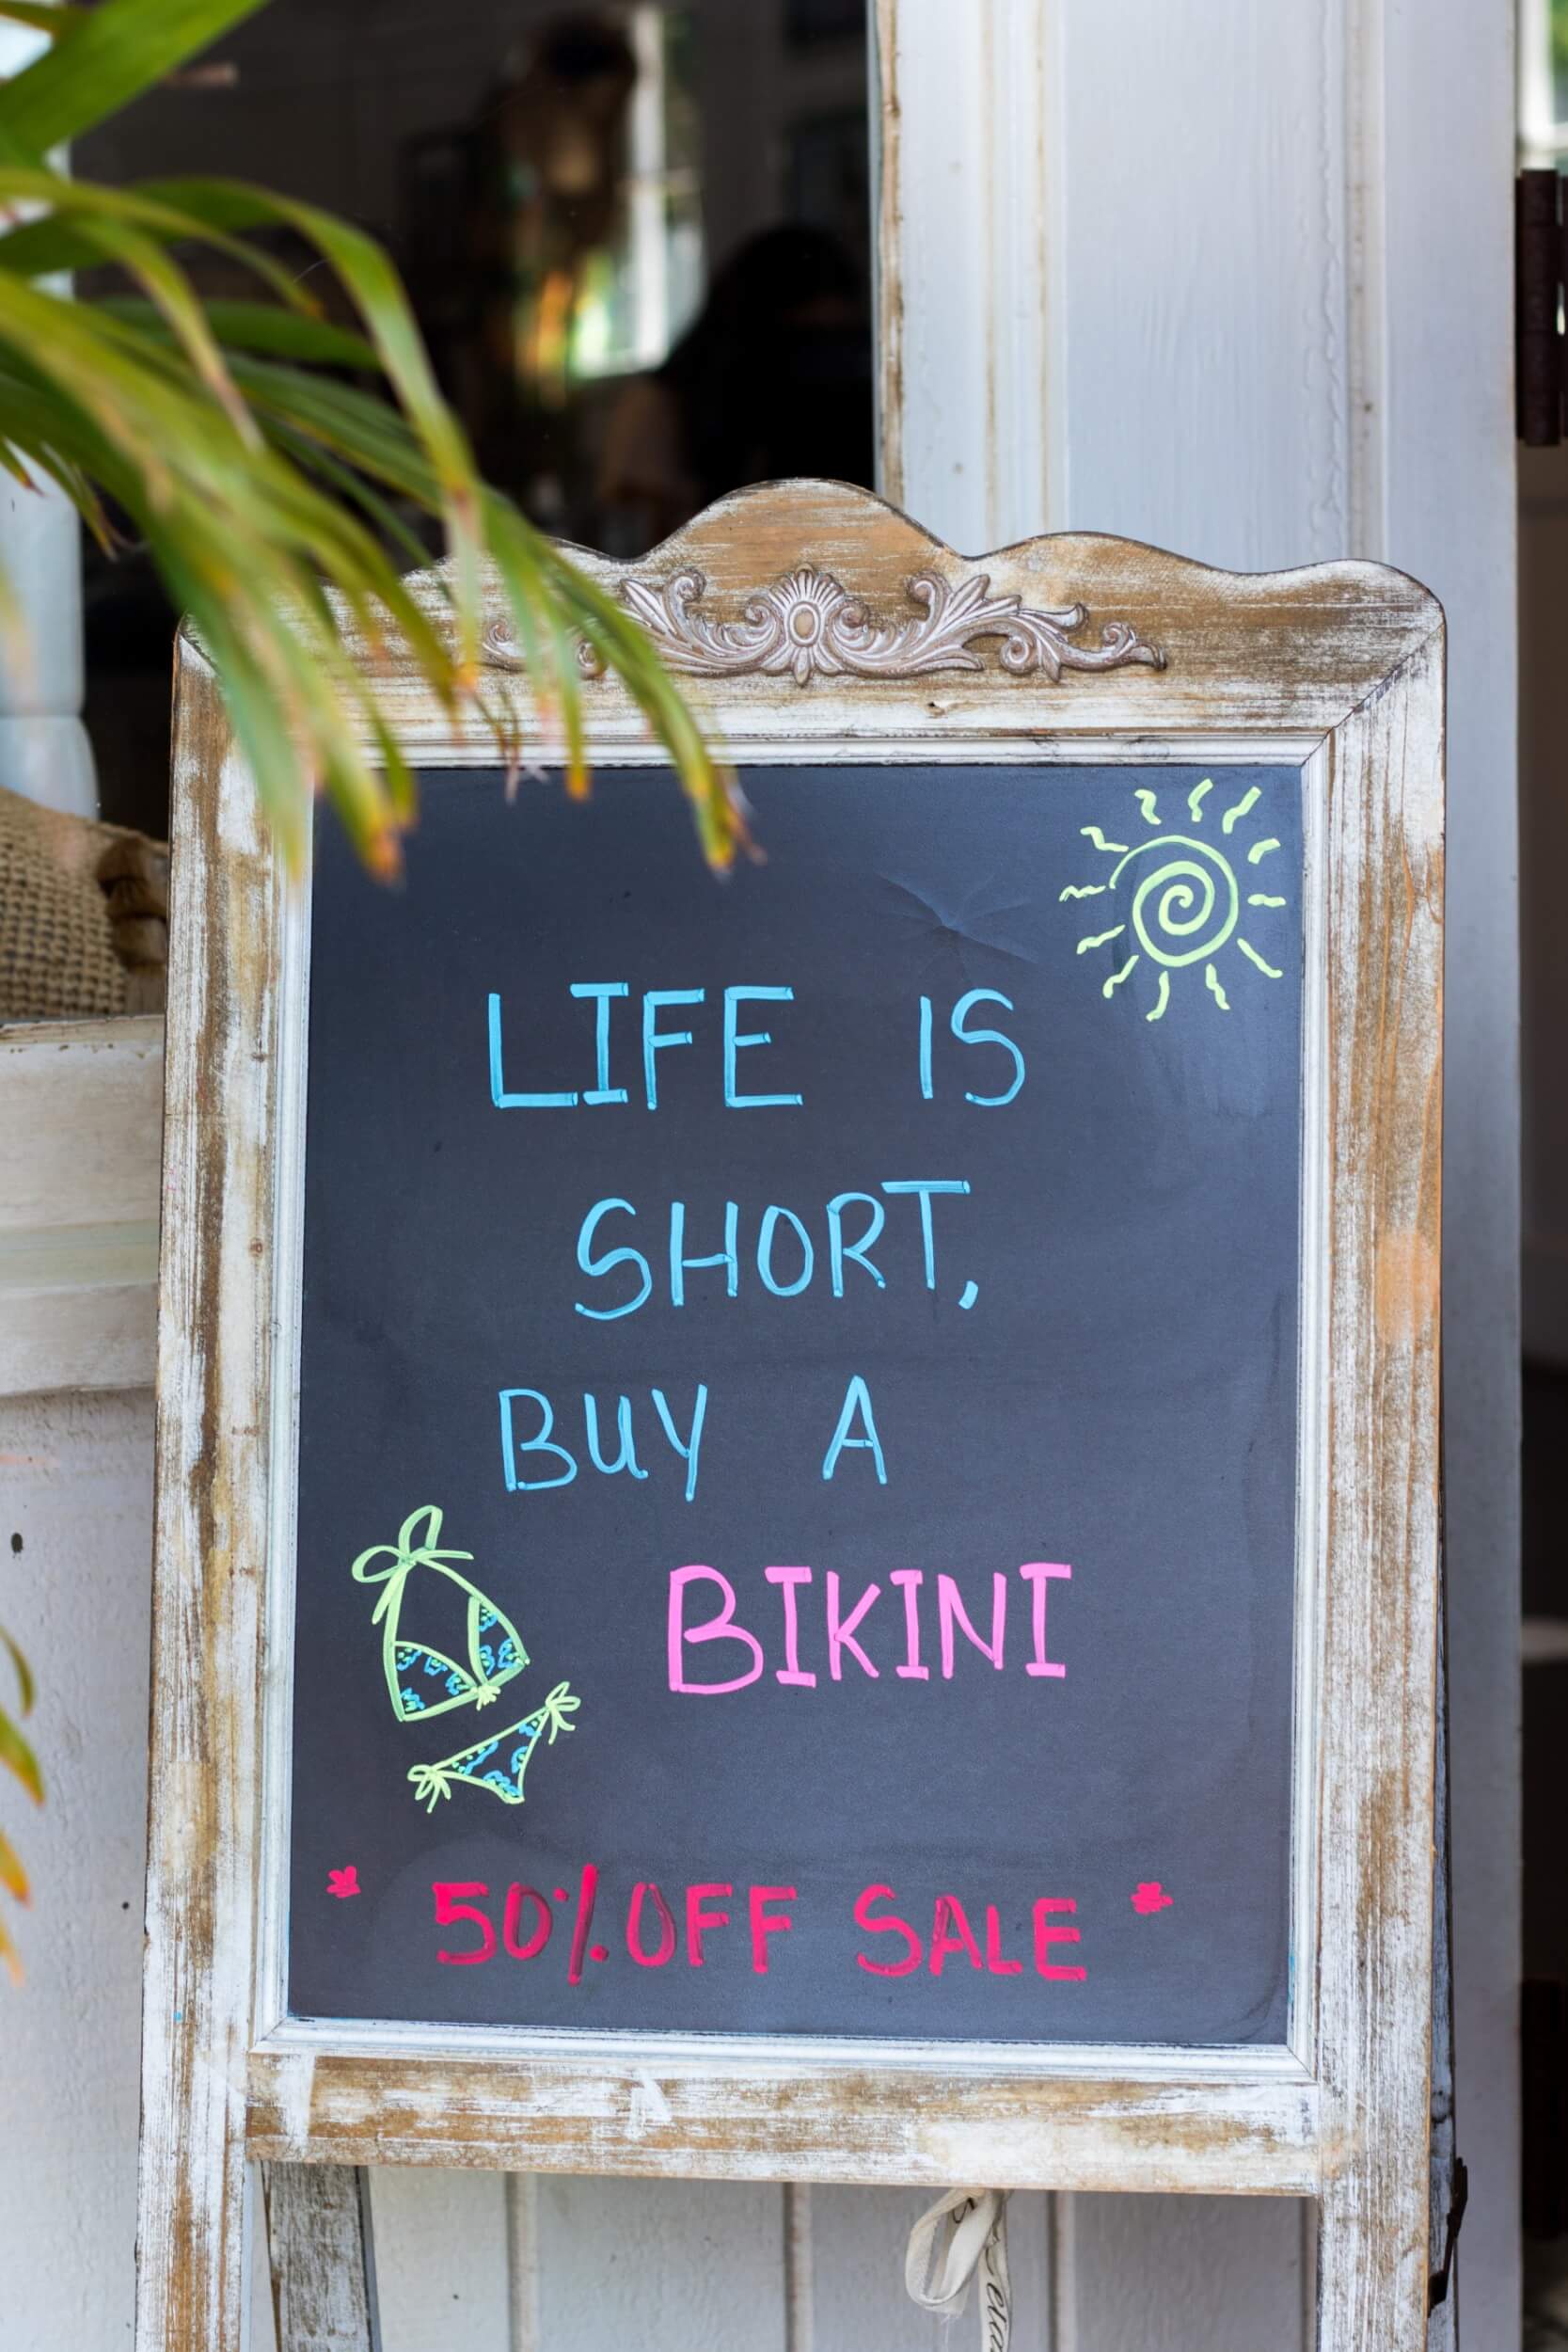 LIFE IS
SHORT,
BUY A
BIKINI
* 50% OFF SALE *